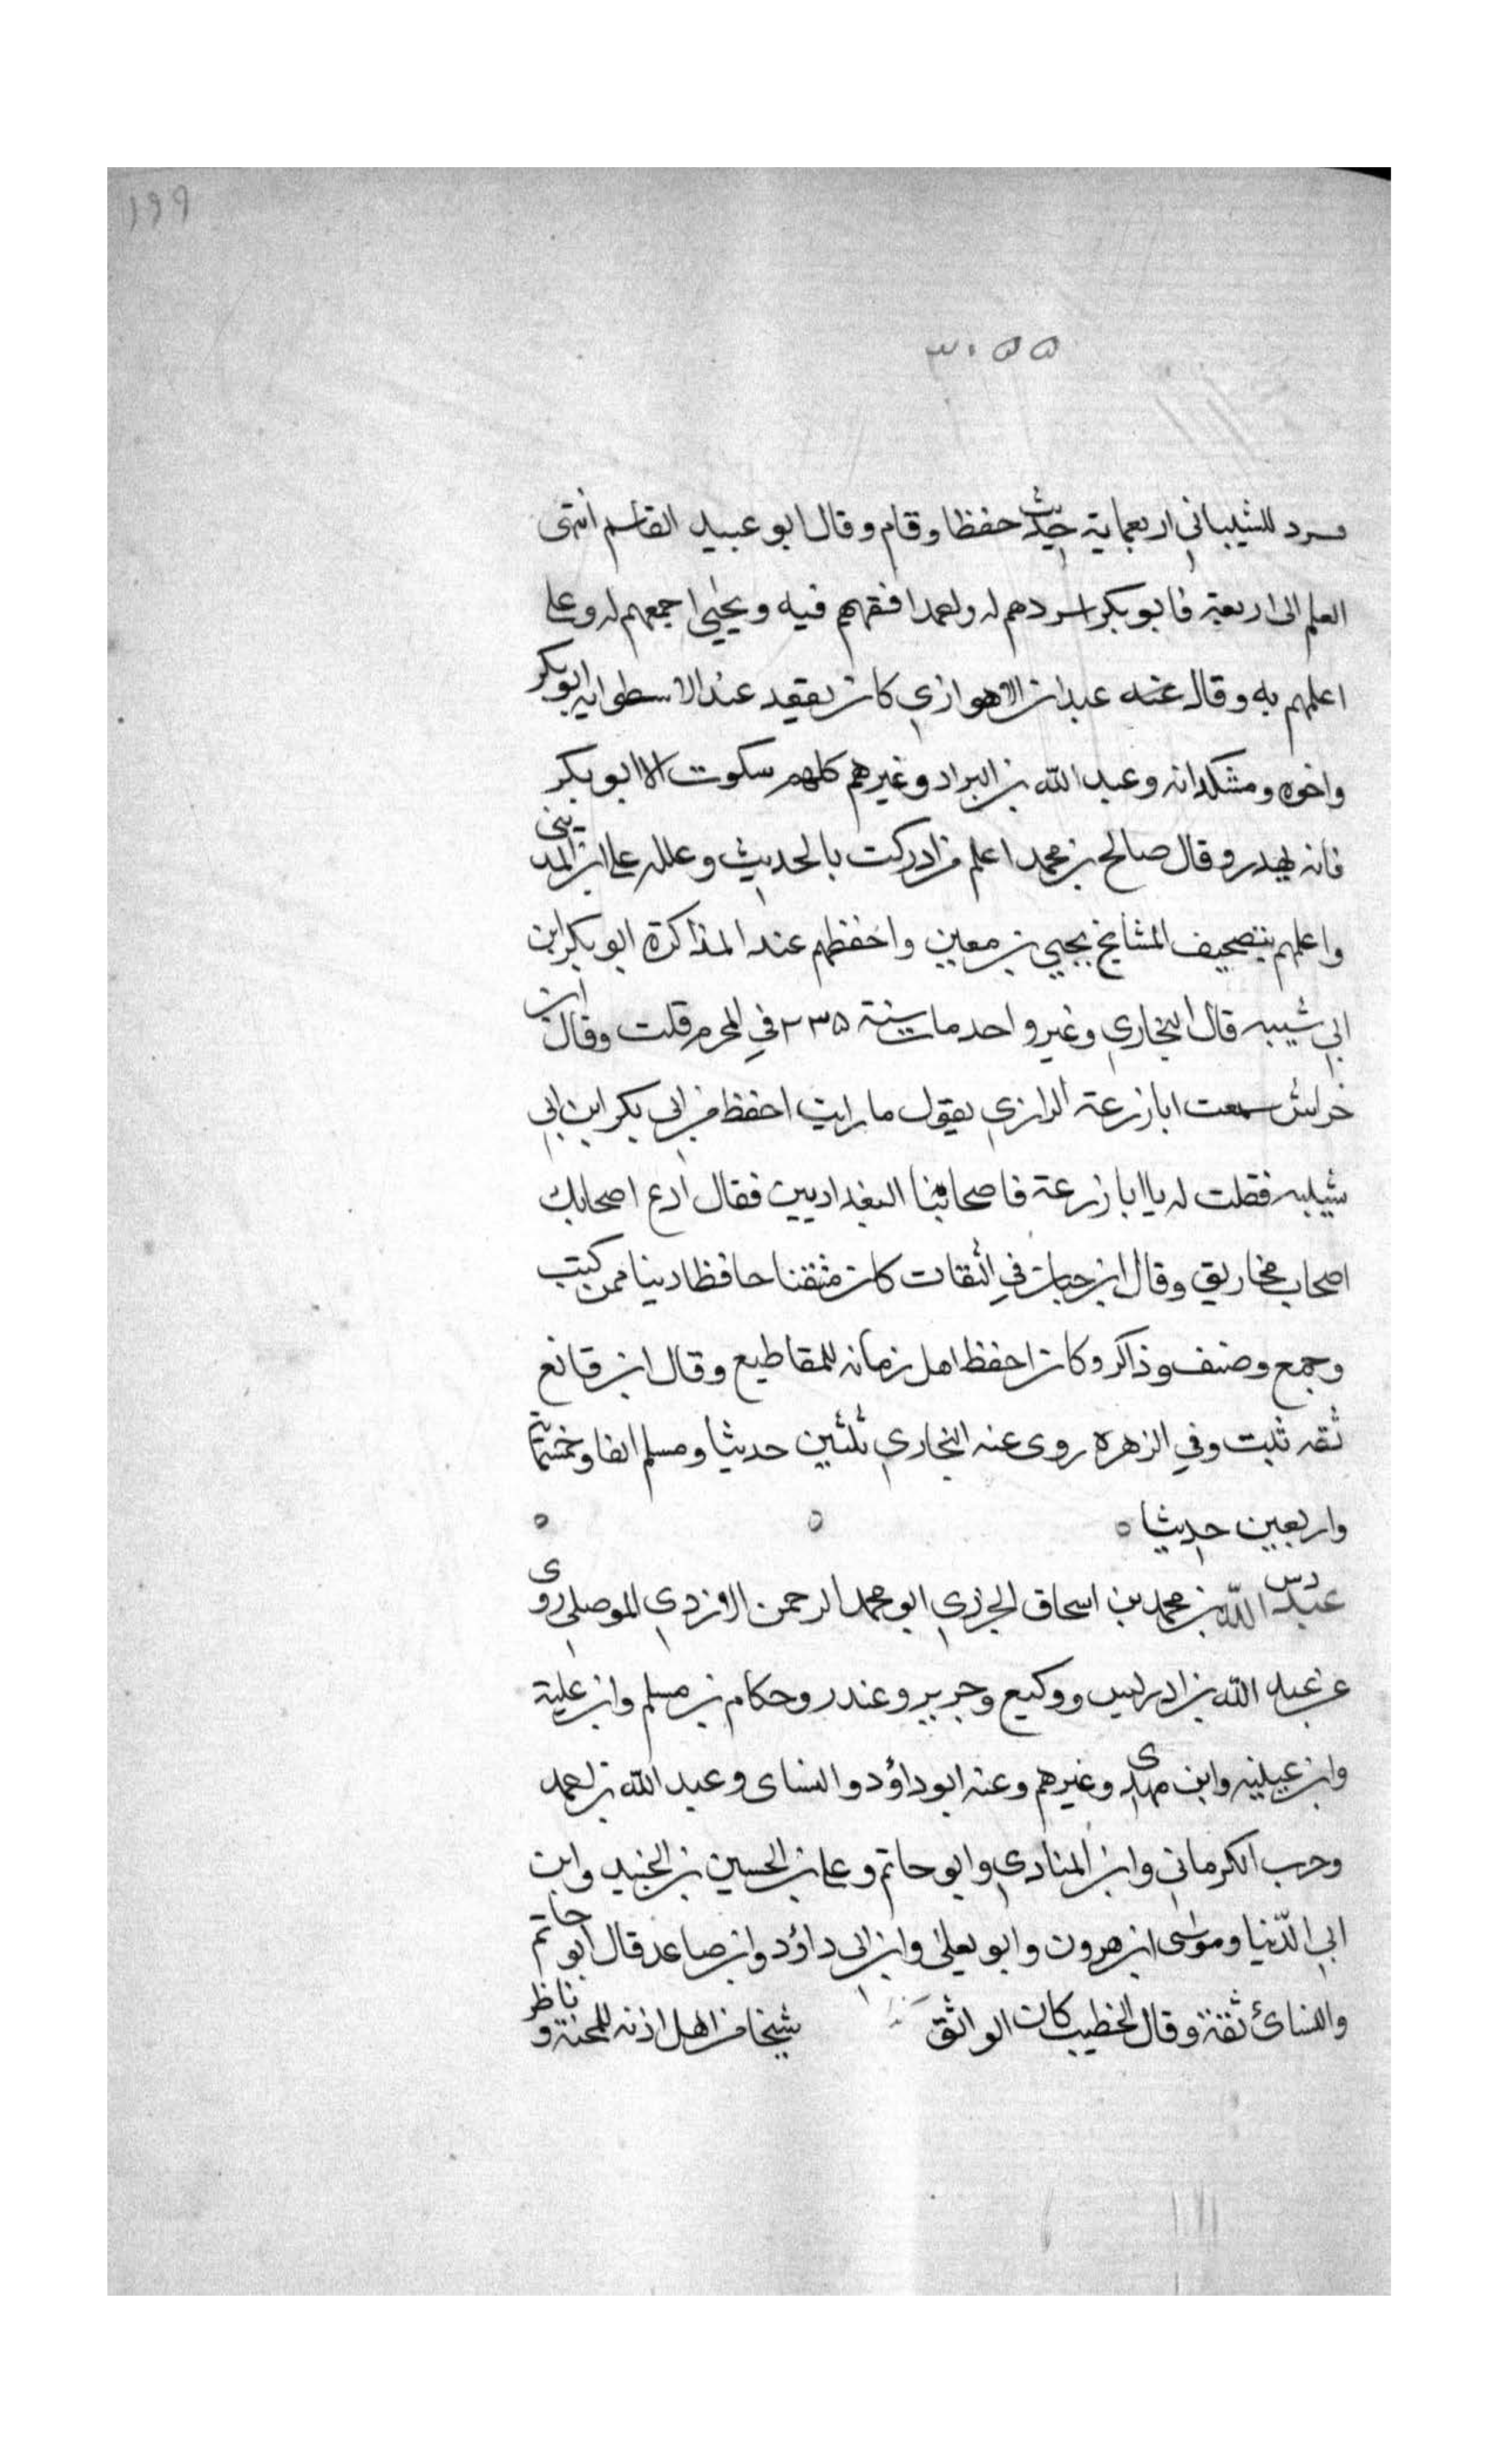 ١٩٩
٣٠٥٥
فسرد للشيباني اربعماية حديث حفظا وقام وقال ابو عبيد القاسم انتهى
العلم الى اربعة فابو بكر اسردهم له واحمد افقههم فيه ويحيى اجمعهم له وعلى
اعلمهم به وقال عنه عبدان الاهوازي كان يقعد عند الاسطوانه ابو بكر
واخوه ومشكدانه وعبد الله بن البراد وغيرهم كلهم سكوت الا ابو بكر
فانه يهدر وقال صالح بن محمد اعلم من ادركت بالحديث وعلله على ابن المديني
واعلمهم بتصحيف المشايخ يحيى بن معين واحفظهم عند المذاكرة ابو بكر ابن
ابي شيبه قال البخاري وغير واحد مات سنة ٢٣٥ في المحرم قلت وقال ابن
خراش سمعت ابا زرعة الرازي يقول ما رايت احفظ من ابي بكر ابن ابي
شيبه فقلت له يا ابا زرعة فاصحابنا البغداديين فقال ادع اصحابك
اصحاب مخاريق وقال ابن حبان في الثقات كان متقنا حافظا دينا ممن كتب
وجمع وصنف وذاكر وكان احفظ اهل زمانه للمقاطيع وقال ابن قانع
ثقه ثبت وفي الزهره روى عنه البخاري ثلثين حديثا ومسلم الفا وخمسماية
واربعين حديثا ٥ ٥ ٥
دس
عبد الله بن محمد بن اسحاق الجزري ابو محمد الرحمن الاذردي الموصلي روى
عن عبد الله بن ادريس ووكيع وجرير وغندر وحكام بن مسلم وابن علية
وابن عيينه وابن مهدى وغيرهم وعنه ابو داؤد والنساى وعبد الله بن احمد
وحرب الكرماني وابن المنادي وابو حاتم وعلى بن الحسين بن الجنيد وابن
ابي الدنيا وموسى ابن هرون وابو يعلى وابن ابى داؤد وابن صاعد قال ابو حاتم
والنسائ ثقة وقال الخطيب كان الواثق شيخا من اهل اذنه للمحنة وناظر